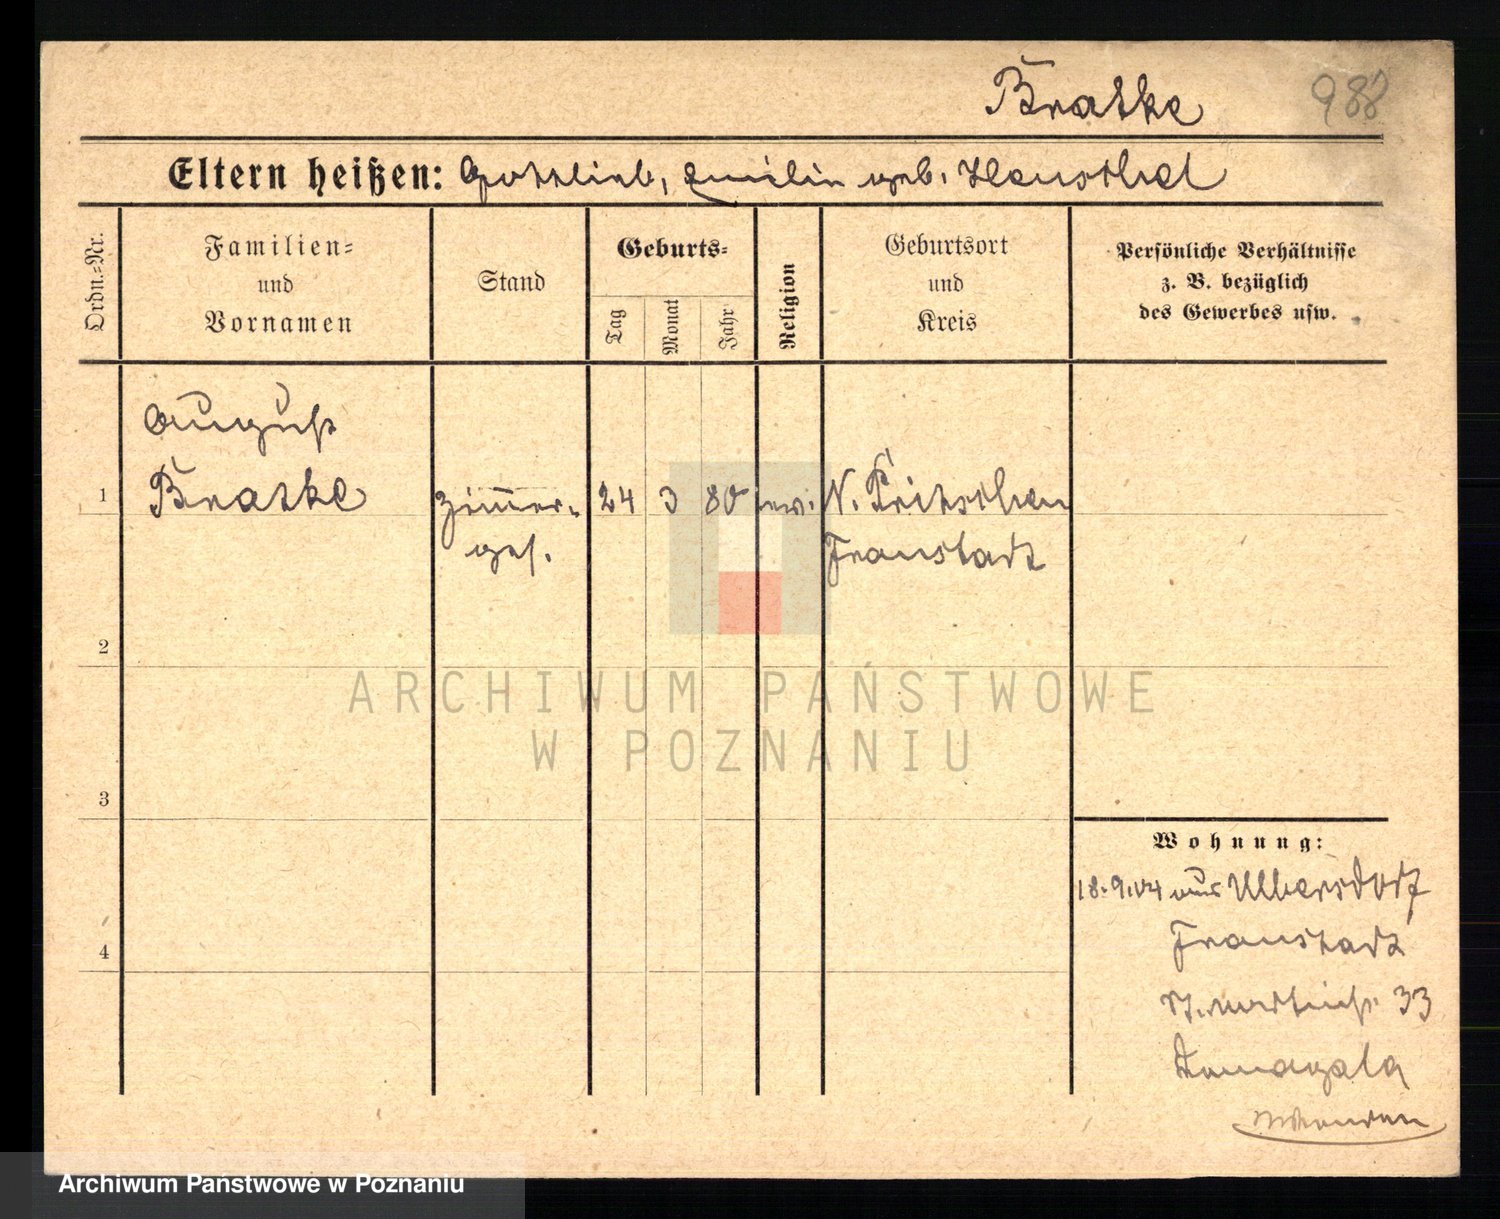 Bratke
988
Eltern heißen: Gottlieb, Emilie geb. Henschel
Ordn.-Nr.
Familien-
und
Vornamen
Stand
Geburts-
Tag
Monat
Jahr
Religion
Geburtsort
und
Kreis
Persönliche Verhältnisse
z. B. bezüglich
des Gewerbes usw.
August
1 Bratke Zimmer- 24 3 80 ev. N. Pritschen
ges. Fraustadt
2
3
4
Wohnung:
18.9.04 aus Ulbersdorf
Fraustadt
St. Martinstr. 33
Domagala
ARCHIWUM PAŃSTWOWE
W POZNANIU
Archiwum Państwowe w Poznaniu